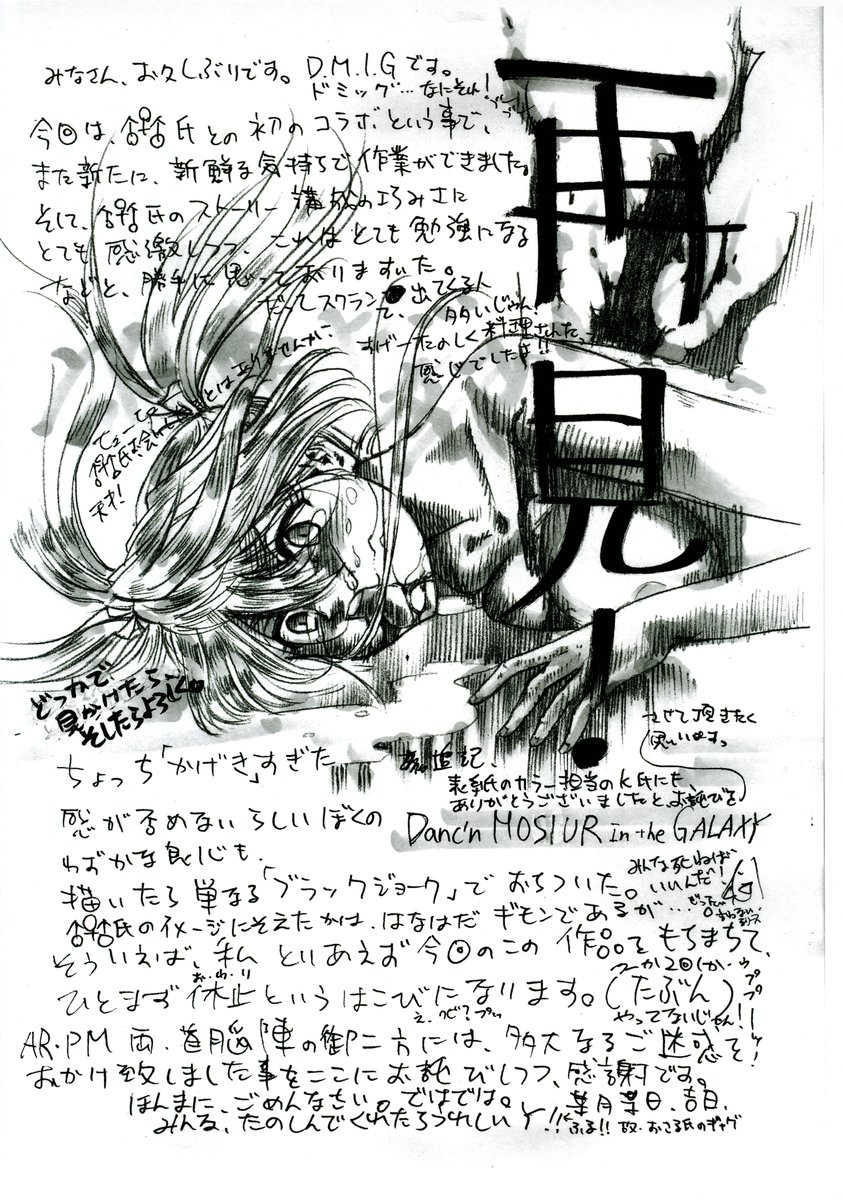 みなさん、お久しぶりです。D.M.I.Gです。
ドミッグ…なにそれ!
今回は、氏との初のコラボという事で、
また新たに、新鮮な気持ちで作業ができました。
そして、氏のストーリー構成の巧みさに
とても感激しつつ、これはとても勉強になる
などと、勝手に思っておりますいた。
だってスクラン出てくる人
て、多いじゃん!
すげーたのしく料理されたっ
感じでしたよ!!
とはありませんが、
天才!
再見!
どっかで
見かけたら、
そしたらよろしく。
ちょっち「かげき」すぎた
感が否めないらしいぼくの
わずかな良心も、
描いたら単なる「ブラックジョーク」でおちついた。
氏のイメージにそえたかは、はなはだギモンであるが…
そういえば、私といあえず今回のこの作品をもちまちて、
おわり
ひとまず休止というはこびになります。(たぶん)
追記、
表紙のカラー担当のK氏にも、
ありがとうございましたと、お詫びを
させて頂きたく
思いますっ
Danc'n MOSIUR in the GALAXY
みんな死ねば
いいんだ!
つか2回しか
やってないじゃん!!
AR・PM両・首脳陣の御二方には、多大なるご迷惑を
おかけ致しました事をここにお詫びしつつ、感謝です。
ほんまに、ごめんなさい。ではでは。
みんな、たのしんでくれたらうれしいy!!
葉月某日、吉日、
ふる!!故・おこる氏のギャグ